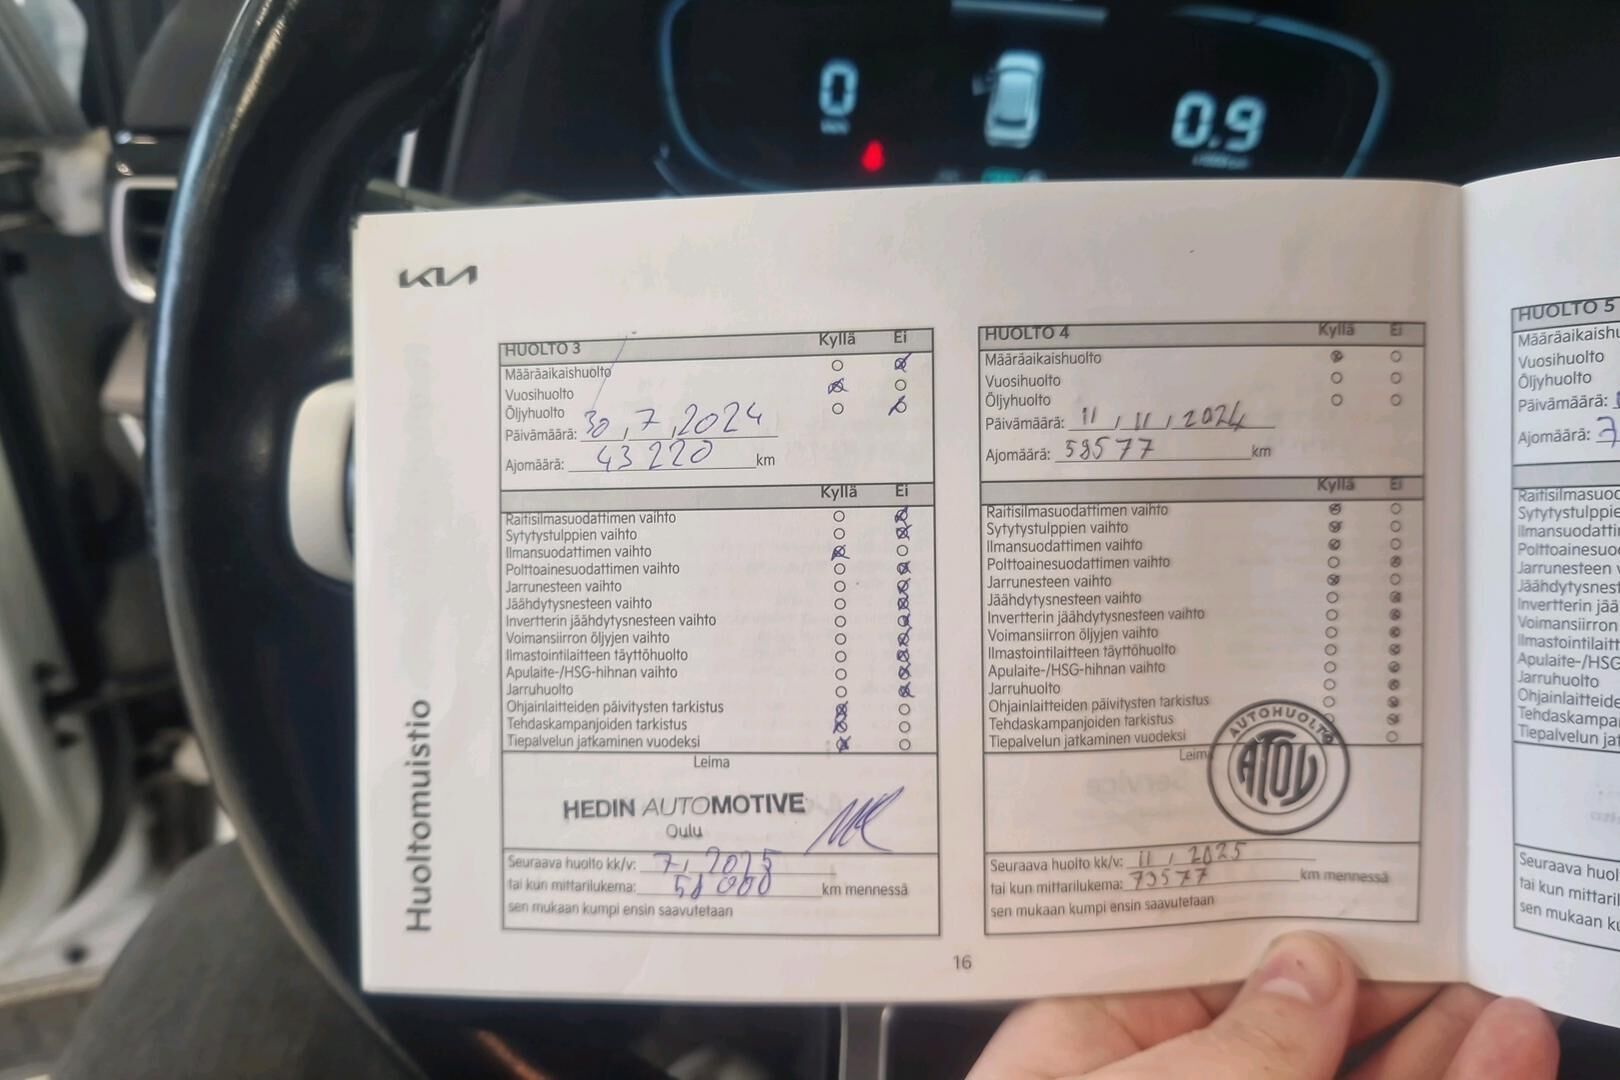 0
0.9
KIA
Huoltomuistio
HUOLTO 3 Kyllä Ei
Määräaikaishuolto
Vuosihuolto
Öljyhuolto
Päivämäärä: 30 , 7 , 2024
Ajomäärä: 43 220 km
Kyllä Ei
Raitisilmasuodattimen vaihto
Sytytystulppien vaihto
Ilmansuodattimen vaihto
Polttoainesuodattimen vaihto
Jarrunesteen vaihto
Jäähdytysnesteen vaihto
Invertterin jäähdytysnesteen vaihto
Voimansiirron öljyjen vaihto
Ilmastointilaitteen täyttöhuolto
Apulaite-/HSG-hihnan vaihto
Jarruhuolto
Ohjainlaitteiden päivitysten tarkistus
Tehdaskampanjoiden tarkistus
Tiepalvelun jatkaminen vuodeksi
Leima
HEDIN AUTOMOTIVE
Oulu
Seuraava huolto kk/v: 7 , 2025
tai kun mittarilukema: 58 000 km mennessä
sen mukaan kumpi ensin saavutetaan
HUOLTO 4 Kyllä Ei
Määräaikaishuolto
Vuosihuolto
Öljyhuolto
Päivämäärä: 11 , 11 , 2024
Ajomäärä: 59577 km
Kyllä Ei
Raitisilmasuodattimen vaihto
Sytytystulppien vaihto
Ilmansuodattimen vaihto
Polttoainesuodattimen vaihto
Jarrunesteen vaihto
Jäähdytysnesteen vaihto
Invertterin jäähdytysnesteen vaihto
Voimansiirron öljyjen vaihto
Ilmastointilaitteen täyttöhuolto
Apulaite-/HSG-hihnan vaihto
Jarruhuolto
Ohjainlaitteiden päivitysten tarkistus
Tehdaskampanjoiden tarkistus
Tiepalvelun jatkaminen vuodeksi
Leim
AUTOHUOLTO
ATOY
Seuraava huolto kk/v: 11 , 2025
tai kun mittarilukema: 79577 km mennessä
sen mukaan kumpi ensin saavutetaan
16
HUOLTO 5
Määräaikaishu
Vuosihuolto
Öljyhuolto
Päivämäärä:
Ajomäärä: 7
Raitisilmasuod
Sytytystulppie
Ilmansuodatti
Polttoainesuo
Jarrunesteen v
Jäähdytysnest
Invertterin jää
Voimansiirron
Ilmastointilait
Apulaite-/HSG
Jarruhuolto
Ohjainlaitteide
Tehdaskampa
Tiepalvelun jat
Seuraava huol
tai kun mittaril
sen mukaan ku